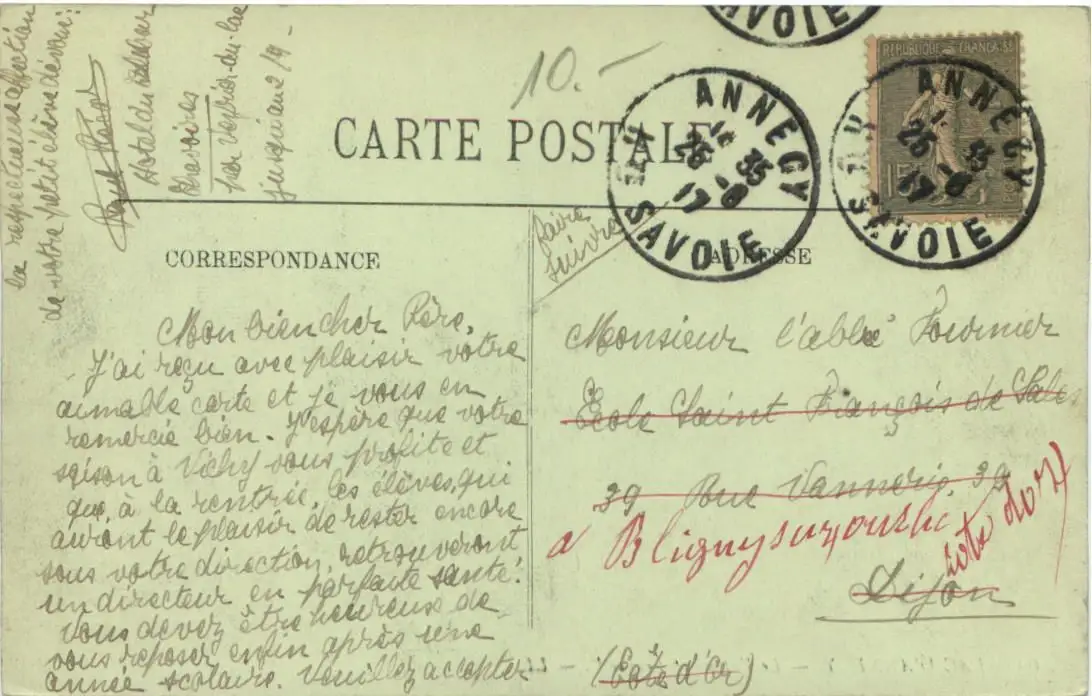 la respectueuse affection
de votre petit élève dévoué:
Hotel du
par Veyrier-du-lac
jusqu'au 2/9 -
10.-
CARTE POSTALE
SAVOIE
REPUBLIQUE FRANÇAISE
15
ANNECY
14 35
26 -8
17
Hte SAVOIE
ANNECY
14 35
26 -8
17
Hte SAVOIE
CORRESPONDANCE
faire
suivre
ADRESSE
Mon bien cher Père,
J'ai reçu avec plaisir votre
aimable carte et je vous en
remercie bien. J'espère que votre
saison à Vichy vous profite et
que, à la rentrée, les élèves, qui
auront le plaisir de rester encore
sous votre direction, retrouveront
un directeur en parfaite santé.
Vous devez être heureux de
vous reposer enfin après une
année scolaire. Veuillez accepter
Monsieur l'abbé Fournier
École Saint François de Sales
39 Rue Vannerie, 39
a Bligny sur ouche
(cote d'or)
Dijon
(Côte d'Or)